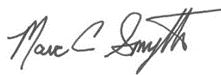 Marc C Smyth